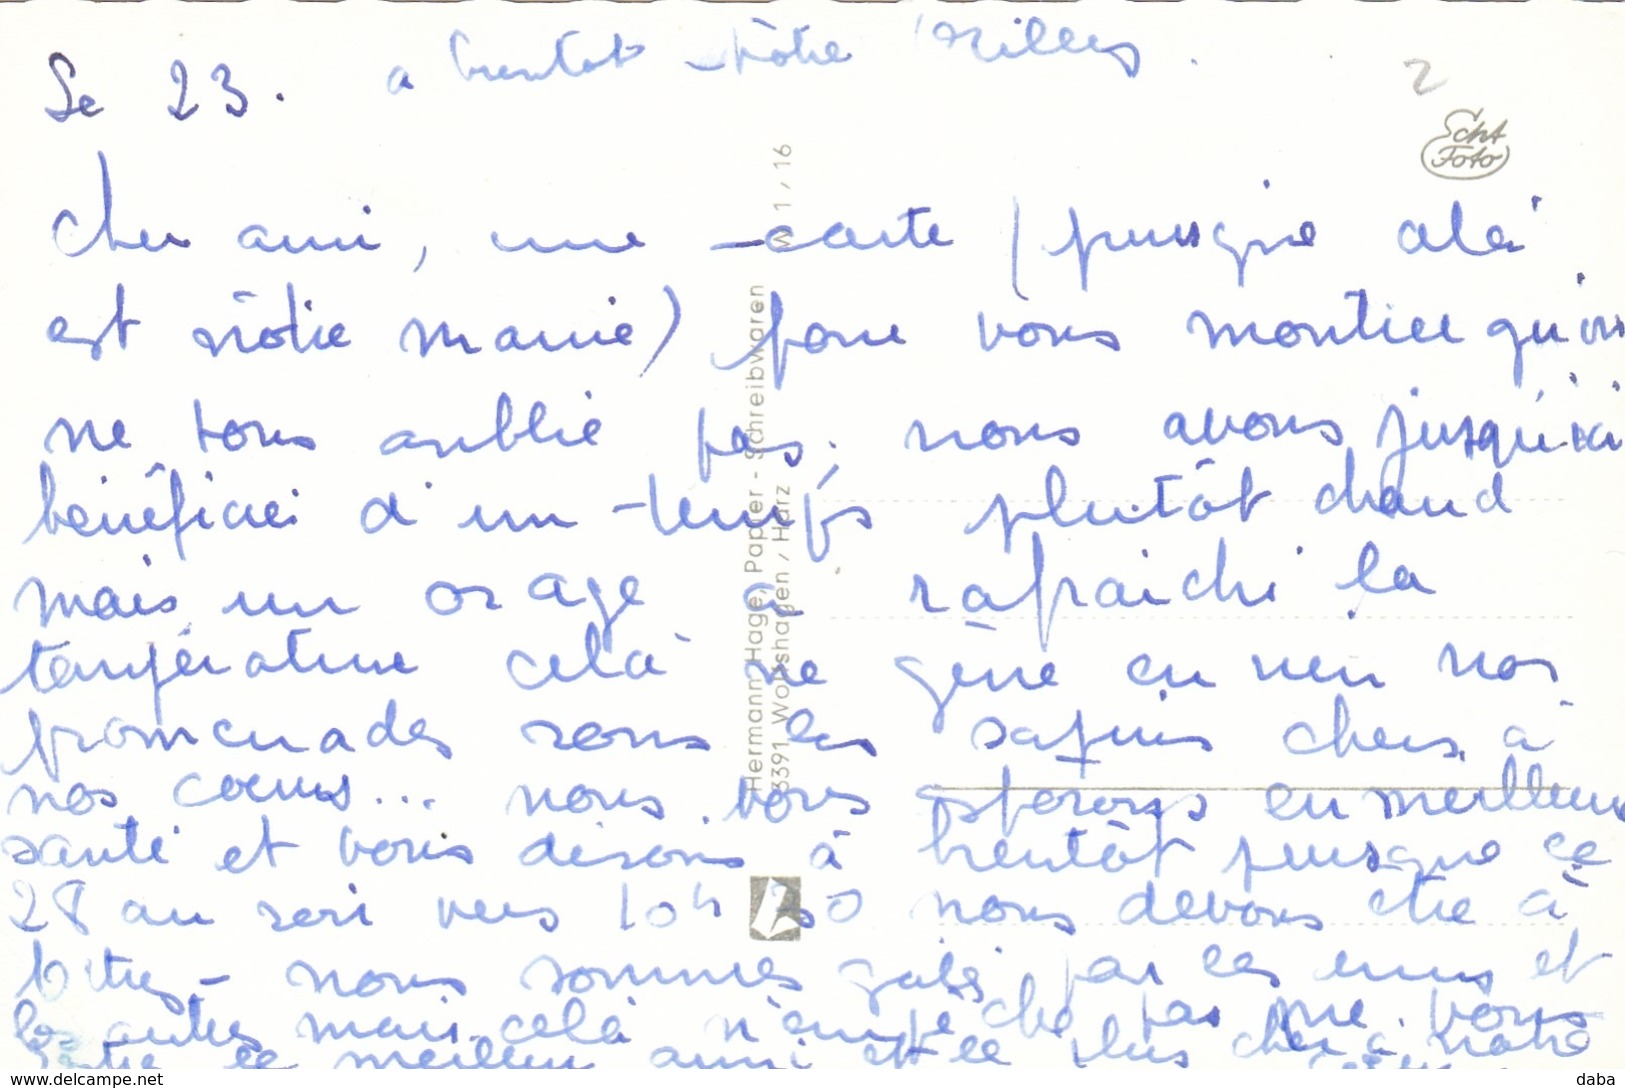 Le 23. a bientot votre Gilles.
2
Echt
Foto
cher ami, une carte (puisque celà
est nôtre manie) pour vous montrer qu'on
ne vous oublie pas. nous avons jusqu'ici
bénéficié d'un temps plutôt chaud
mais un orage a rafraichi la
température celà ne gène en rien nos
promenades sous les sapins chers à
nos coeurs... nous vous espérons en meilleure
santé et vous disons à bientôt puisque ce
28 au soir vers 10h30 nous devons être à
Vitry - nous sommes gatés par les uns et
les autres mais celà n'empêche pas que vous
le meilleur ami et le plus cher à notre
Hermann Hage, Papier - Schreibwaren
3391 Wolfshagen / Harz W 1 / 16
https://www.delcampe.net
daba